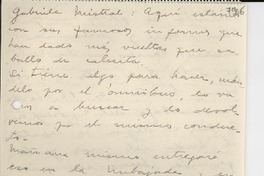 Gabriela Mistral: Aquí estamos
con sus famosos infiernos que
han dado más vueltas que ca-
ballo de calesita.
Si tiene algo para hacer, mán-
delo por el ómnibus, lo va
a buscar y lo devol-
vemos por el mismo conduc-
to.
Mañana mismo entregaré
eso en la Embajada